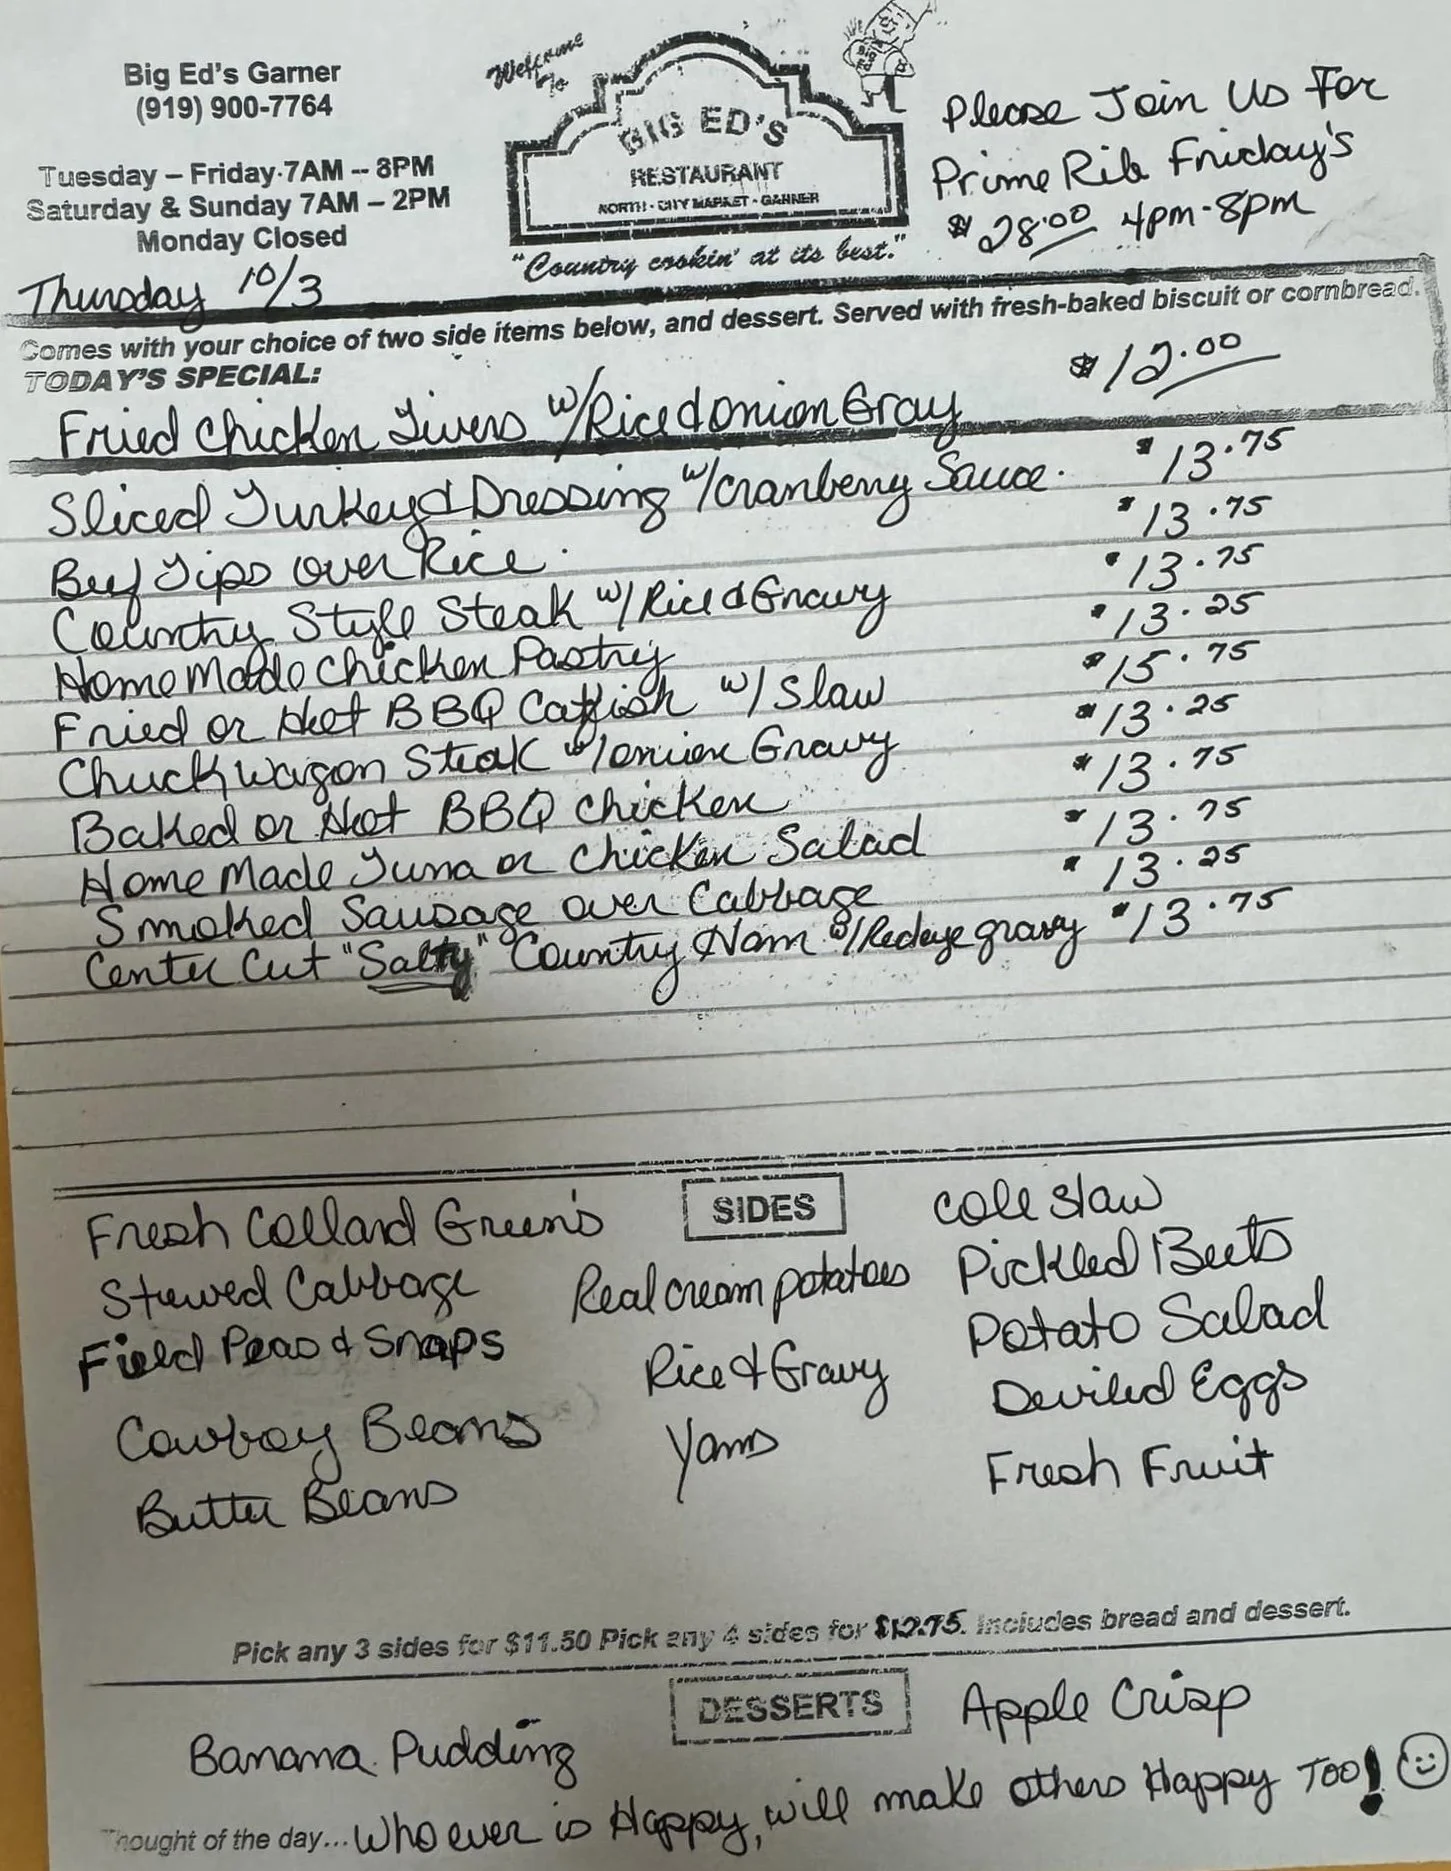 Big Ed's Garner
(919) 900-7764
Tuesday – Friday 7AM -- 8PM
Saturday & Sunday 7AM – 2PM
Monday Closed
Thursday 10/3
Welcome
To
BIG ED'S
RESTAURANT
NORTH · CITY MARKET · GARNER
"Country cookin' at its best."
BIG
ED
Please Join Us For
Prime Rib Friday's
$28.00 4pm-8pm
Comes with your choice of two side items below, and dessert. Served with fresh-baked biscuit or cornbread.
TODAY'S SPECIAL:
Fried Chicken Livers w/Rice & onion Gray $12.00
Sliced Turkey & Dressing w/cranberry Sauce. $13.75
Beef Tips over Rice $13.75
Country Style Steak w/Rice & Gravy $13.75
Home Made Chicken Pastry $13.25
Fried or Hot BBQ Catfish w/Slaw $15.75
Chuckwagon Steak w/onion Gravy $13.25
Baked or Hot BBQ Chicken $13.75
Home Made Tuna or Chicken Salad $13.75
Smoked Sausage over Cabbage $13.25
Center Cut "Salty" Country Ham w/Redeye gravy $13.75
SIDES
Fresh Collard Green's
Stewed Cabbage
Field Peas & Snaps
Cowboy Beans
Butter Beans
Real cream potatoes
Rice & Gravy
Yams
Cole Slaw
Pickled Beets
Potato Salad
Deviled Eggs
Fresh Fruit
Pick any 3 sides for $11.50 Pick any 4 sides for $12.75. Includes bread and dessert.
DESSERTS
Banana Pudding
Apple Crisp
Thought of the day... Whoever is Happy, will make others Happy Too!